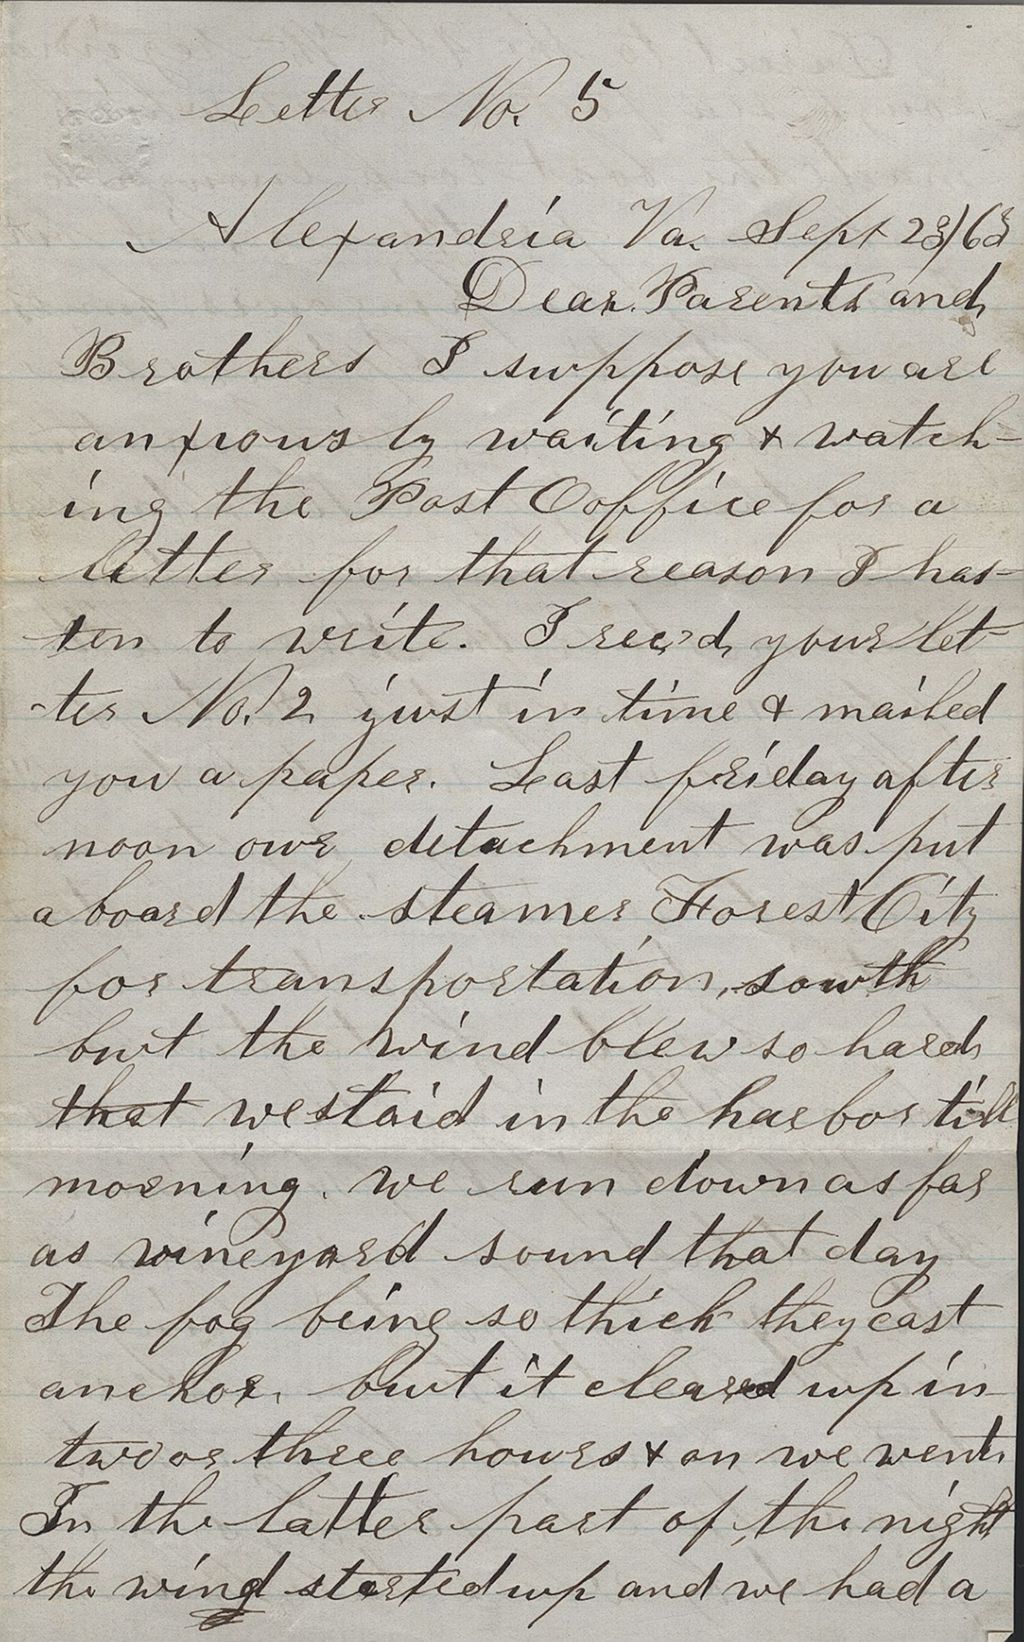 Letter No. 5
Alexandria Va. Sept 23/63
Dear Parents and
Brothers I suppose you are
anxiously waiting & watch-
ing the Post Ooffice for a
letter for that reason I has-
ten to write. I rec,d, your let-
-ter No. 2 just in time & mailed
you a paper. Last friday after
noon our detachment was put
aboard the steamer Forest City
for transportation, south
but the wind blew so hard
that we staid in the harbor till
morning. we run down as far
as vineyard sound that day
The fog being so thick they cast
anchor. but it cleared up in
two or three hours & on we went.
In the latter part of the night
the wing started up and we had a